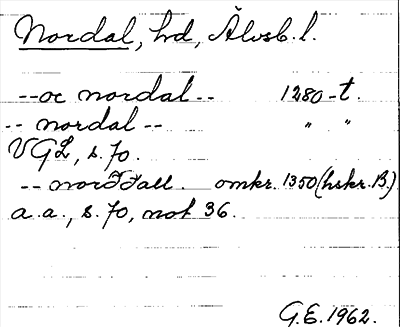 Nordal, hd, Älvsb. l.
--oc nordal-- 1280-t.
-- nordal -- " "
VGL, s. 70.
-- norddall. omkr. 1350 (hskr. B.)
a.a., s. 70, not 36.
G.E. 1962.